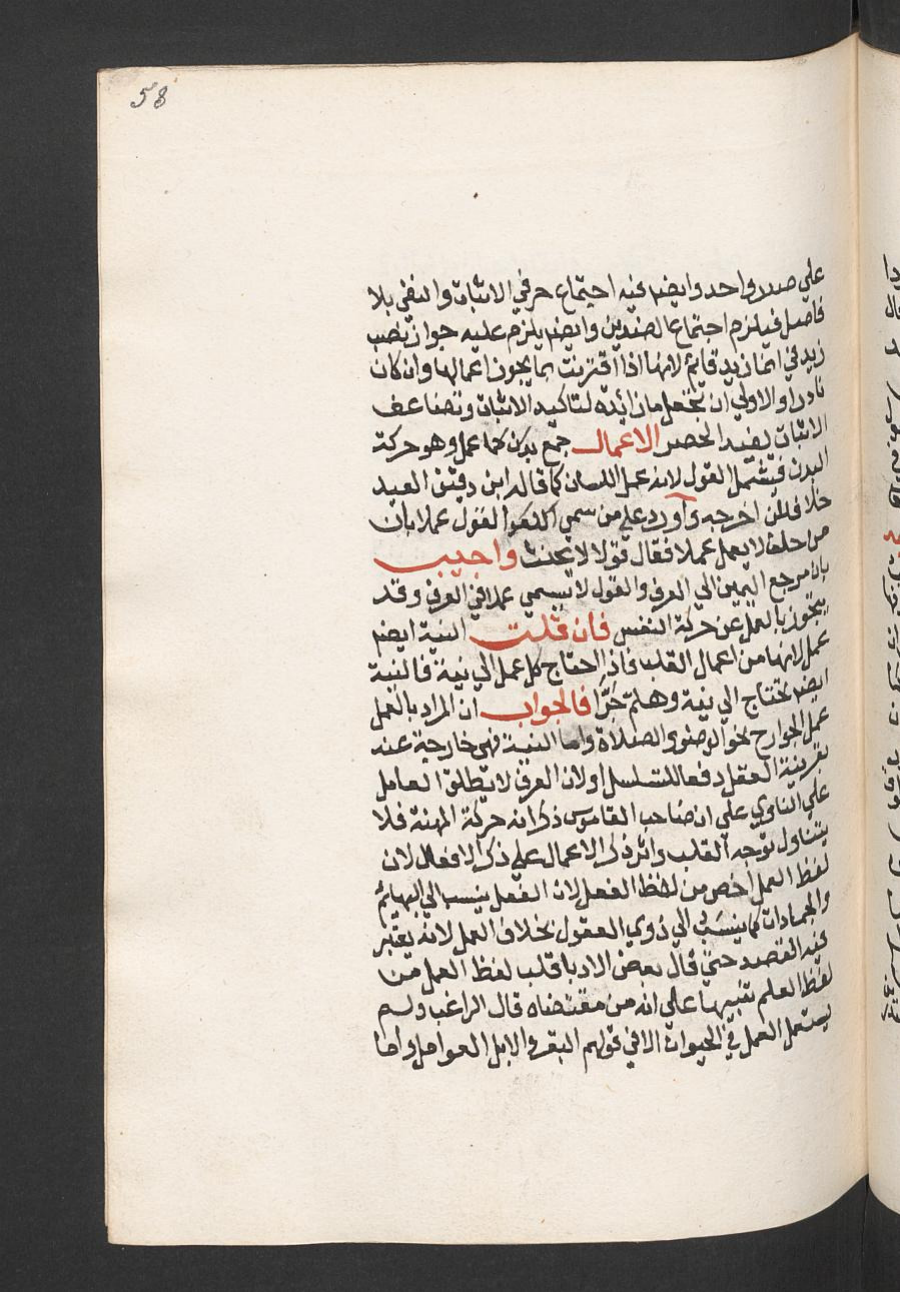 58
علي صدر واحد وايضا فيه اجتماع حرفي الاثبات والنفي بلا
فاصل فيلزم اجتماع الضدين وايضا يلزم عليه جواز نصب
زيد في انما زيد قائم لانها اذا اقترنت بما يجوز اعمالها وان كان
نادرا والاولي ان تجعل ما زائدة لتاكيد الاثبات وتضاعف
الاثبات يفيد الحصر الاعمال جمع بدن كما عمل وهو حركة
البدن فيشمل القول لانه عمل اللسان كما قاله ابن دقيق العيد
خلافا لمن اخرجه واورد علي من سمي القول عملا بان
من حلف لا يعمل عملا فقال قولا لا يحنث واجيب
بان مرجع اليمين الي العرف والقول لا يسمي عملا في العرف وقد
يتجوز بالعمل عن حركة النفس فان قلت النية ايضا
عمل لانها من اعمال القلب فاذا احتاج كل عمل الي نية فالنية
ايضا تحتاج الي نية وهلم جرا فالجواب ان المراد بالعمل
عمل الجوارح نحو الوضوء والصلاة واما النية فهي خارجة عنه
بقرينة العقل دفعا للتسلسل او لان العرف لا يطلق العامل
علي الناوي علي ان صاحب القاموس ذكر انه حركة المهنة فلا
يتناول توجه القلب واثر ذكر الاعمال علي ذكر الافعال لان
لفظ العمل اخص من لفظ الفعل لان الفعل ينسب الي البهائم
والجمادات كما ينسب الي ذوي العقول بخلاف العمل لانه يعتبر
فيه القصد حتي قال بعض الادبا قلب لفظ العمل من
لفظ العلم تنبيها علي انه من مقتضاه قال الراغب ولم
يستعمل العمل في الحيوان الا في قولهم البقر والابل العوامل واما